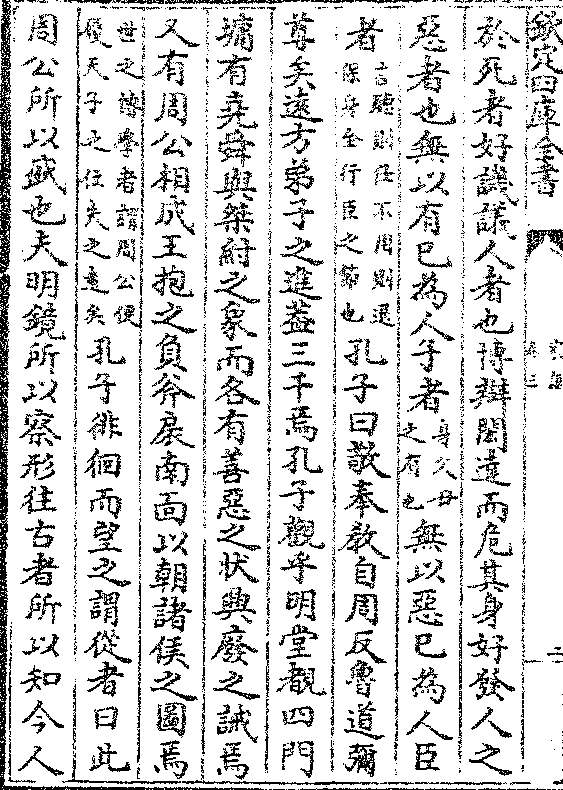 欽定四庫全書
卷三
二
於死者好譏議人者也博辯閎達而危其身好發人之
惡者也無以有己為人子者身父母之有也無以惡己為人臣
者言聽則仕不用則退保身全行臣之節也孔子曰敬奉教自周反魯道彌
尊矣遠方弟子之進蓋三千焉孔子觀乎明堂覩四門
墉有堯舜與桀紂之象而各有善惡之狀興廢之誡焉
又有周公相成王抱之負斧扆南面以朝諸侯之圖焉
世之博學者謂周公便履天子之位失之遠矣孔子徘徊而望之謂從者曰此
周公所以盛也夫明鏡所以察形往古者所以知今人